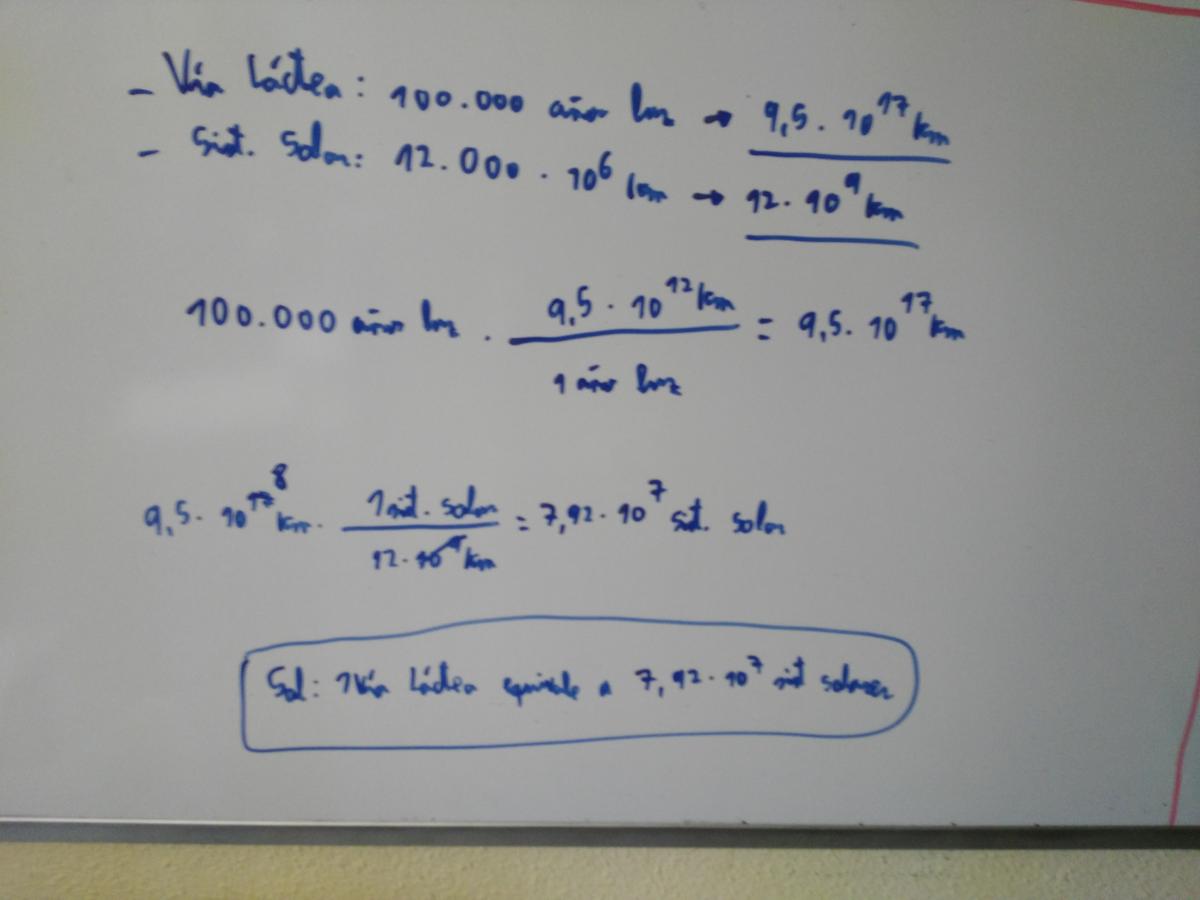 - Vía Láctea: 100.000 años luz → 9,5 · 10^17 km
- Sist. Solar: 12.000 · 10^6 km → 12 · 10^9 km
100.000 años luz · 9,5 · 10^12 km / 1 año luz = 9,5 · 10^17 km
9,5 · 10^17 8 km · 1 sist. solar / 12 · 10^9 km = 7,92 · 10^7 sist. solar
Sol: 1 Vía Láctea equivale a 7,92 · 10^7 sist solares